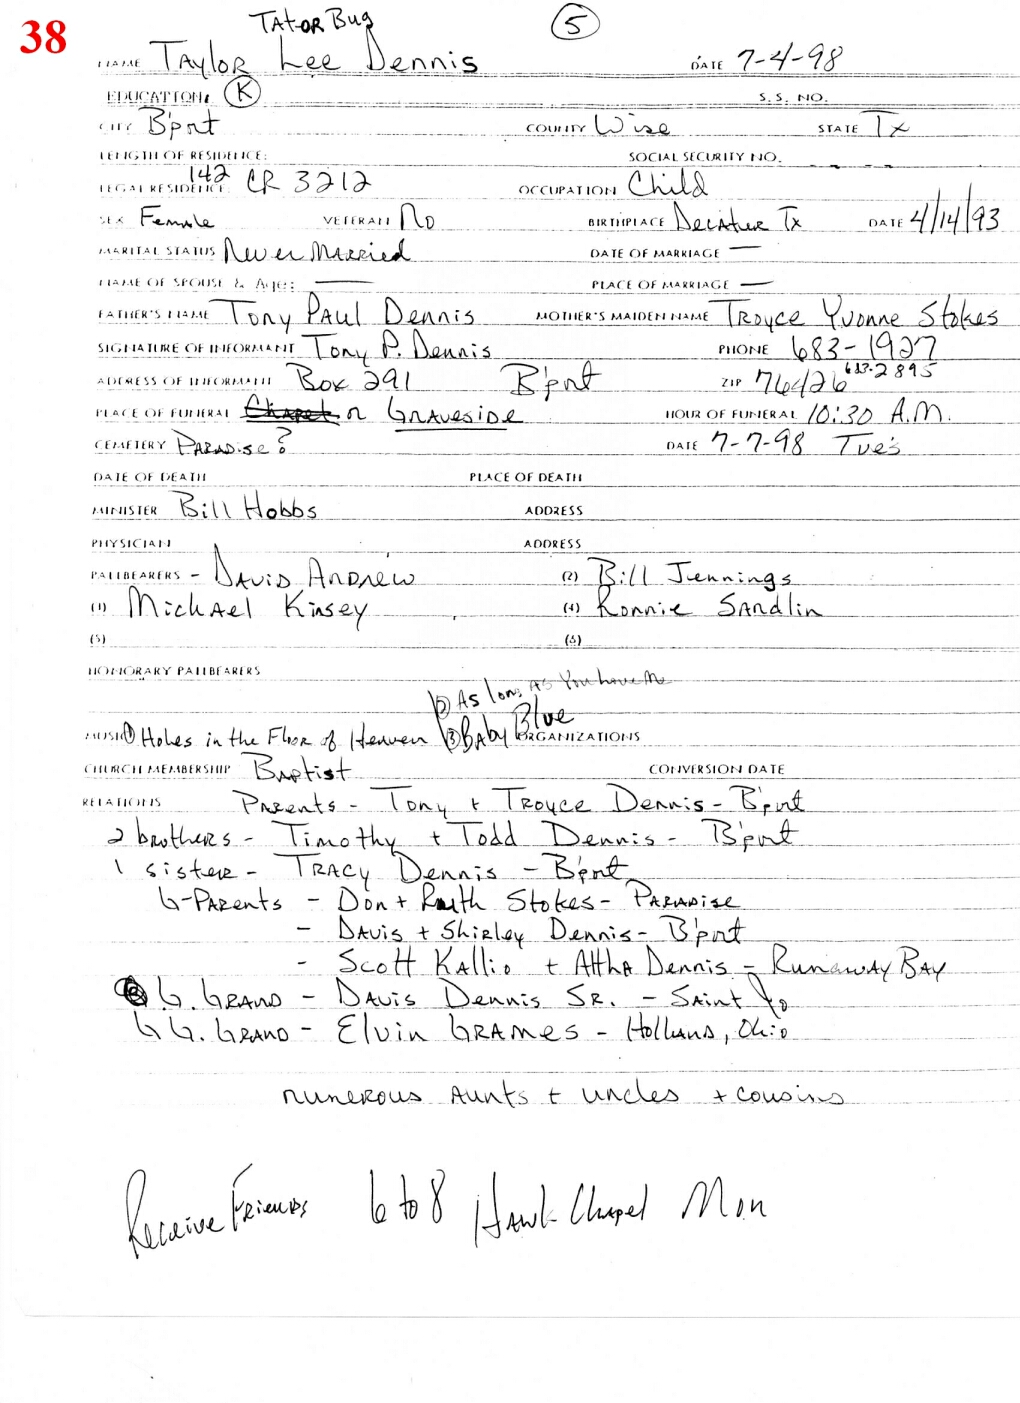 38
TATOR Bug
5
NAME Taylor Lee Dennis DATE 7-4-98
EDUCATION: K S.S. NO.
CITY B'port COUNTY Wise STATE Tx
LENGTH OF RESIDENCE: SOCIAL SECURITY NO.
LEGAL RESIDENCE: 142 CR 3212 OCCUPATION Child
SEX Female VETERAN No BIRTHPLACE Decatur Tx DATE 4/14/93
MARITAL STATUS Never Married DATE OF MARRIAGE —
NAME OF SPOUSE & Age: — PLACE OF MARRIAGE —
FATHER'S NAME Tony Paul Dennis MOTHER'S MAIDEN NAME Troyce Yvonne Stokes
SIGNATURE OF INFORMANT Tony P. Dennis PHONE 683-1927
ADDRESS OF INFORMANT Box 291 B'port ZIP 76426 683-2895
PLACE OF FUNERAL Chapel or Graveside HOUR OF FUNERAL 10:30 A.M.
CEMETERY Paradise? DATE 7-7-98 Tue's
DATE OF DEATH PLACE OF DEATH
MINISTER Bill Hobbs ADDRESS
PHYSICIAN ADDRESS
PALLBEARERS - David Andrew (2) Bill Jennings
(1) Michael Kinsey (4) Ronnie Sandlin
(5) (6)
HONORARY PALLBEARERS
② As long As You Love Me
MUSIC ① Holes in the Floor of Heaven ③ Baby Blue ORGANIZATIONS
CHURCH MEMBERSHIP Baptist CONVERSION DATE
RELATIONS Parents - Tony + Troyce Dennis - B'port
2 brothers - Timothy + Todd Dennis - B'port
1 sister - Tracy Dennis - B'port
G-Parents - Don + Ruth Stokes - Paradise
- Davis + Shirley Dennis - B'port
- Scott Kallio + Altha Dennis - Runaway Bay
G. Grand - Davis Dennis Sr. - Saint Jo
G G. Grand - Elvin Grames - Holland, Ohio
numerous Aunts + uncles + cousins
Receive Friends 6 to 8 Hawk Chapel Mon